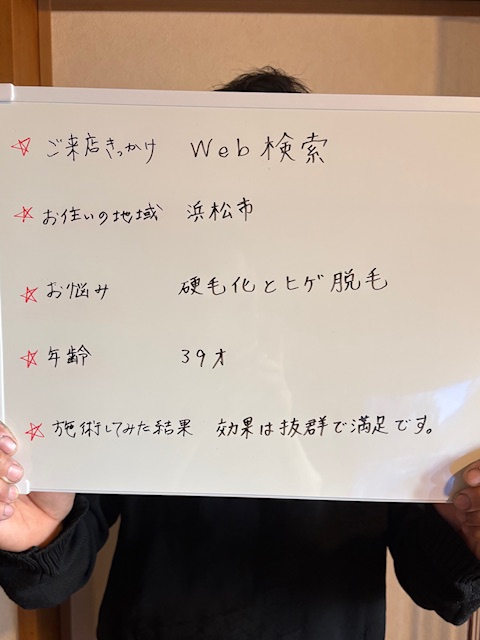 ☆ ご来店きっかけ Web検索
☆ お住いの地域 浜松市
☆ お悩み 硬毛化とヒゲ脱毛
☆ 年齢 39才
☆ 施術してみた結果 効果は抜群で満足です。